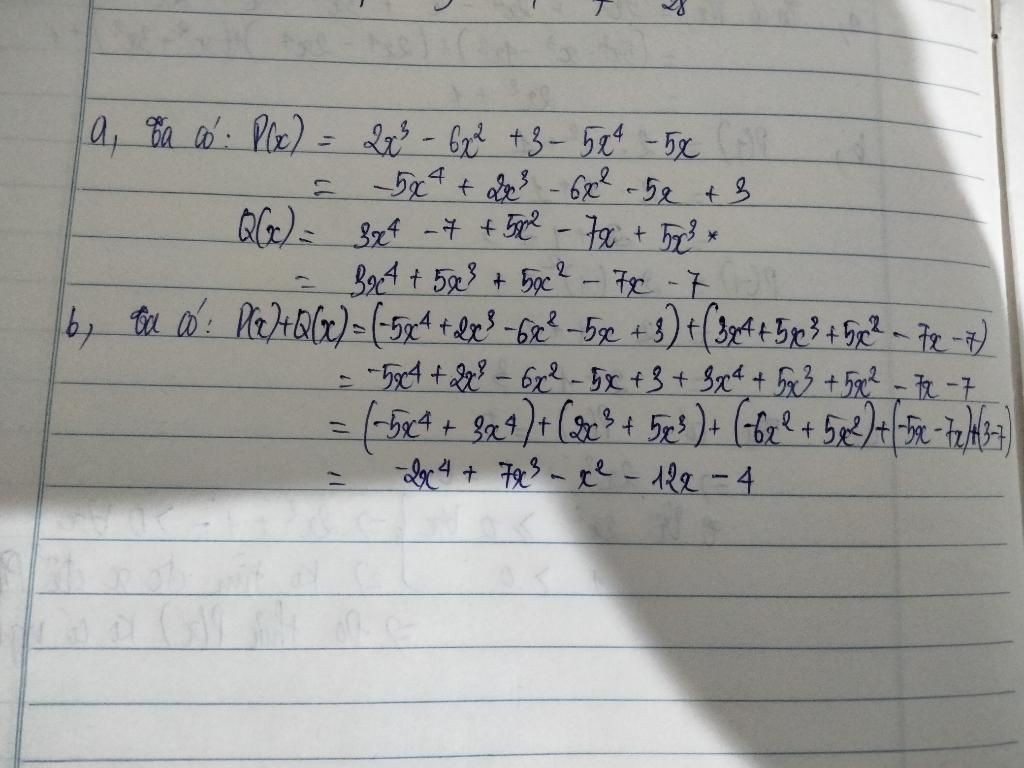 28
a, Ta có: P(x) = 2x³ - 6x² + 3 - 5x⁴ - 5x
= -5x⁴ + 2x³ - 6x² - 5x + 3
Q(x) = 3x⁴ - 7 + 5x² - 7x + 5x³ *
= 3x⁴ + 5x³ + 5x² - 7x - 7
b, Ta có: P(x)+Q(x) = (-5x⁴ + 2x³ - 6x² - 5x + 3) + (3x⁴ + 5x³ + 5x² - 7x - 7)
= -5x⁴ + 2x³ - 6x² - 5x + 3 + 3x⁴ + 5x³ + 5x² - 7x - 7
= (-5x⁴ + 3x⁴) + (2x³ + 5x³) + (-6x² + 5x²) + (-5x - 7x) + (3-7)
= -2x⁴ + 7x³ - x² - 12x - 4